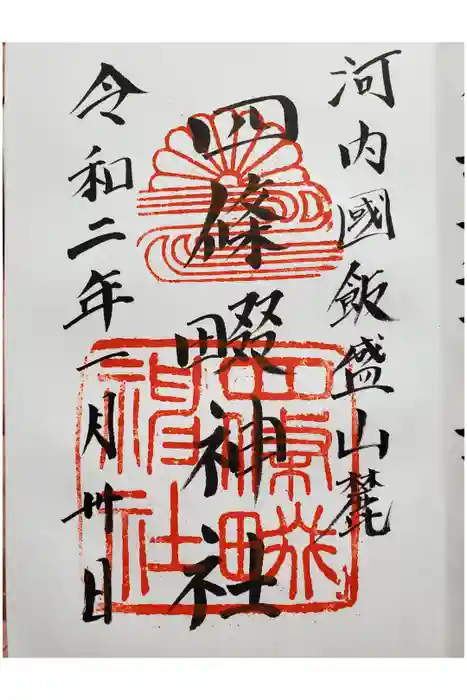 河内國飯盛山麓
四條畷神社
令和二年一月卅日
四條畷
神社